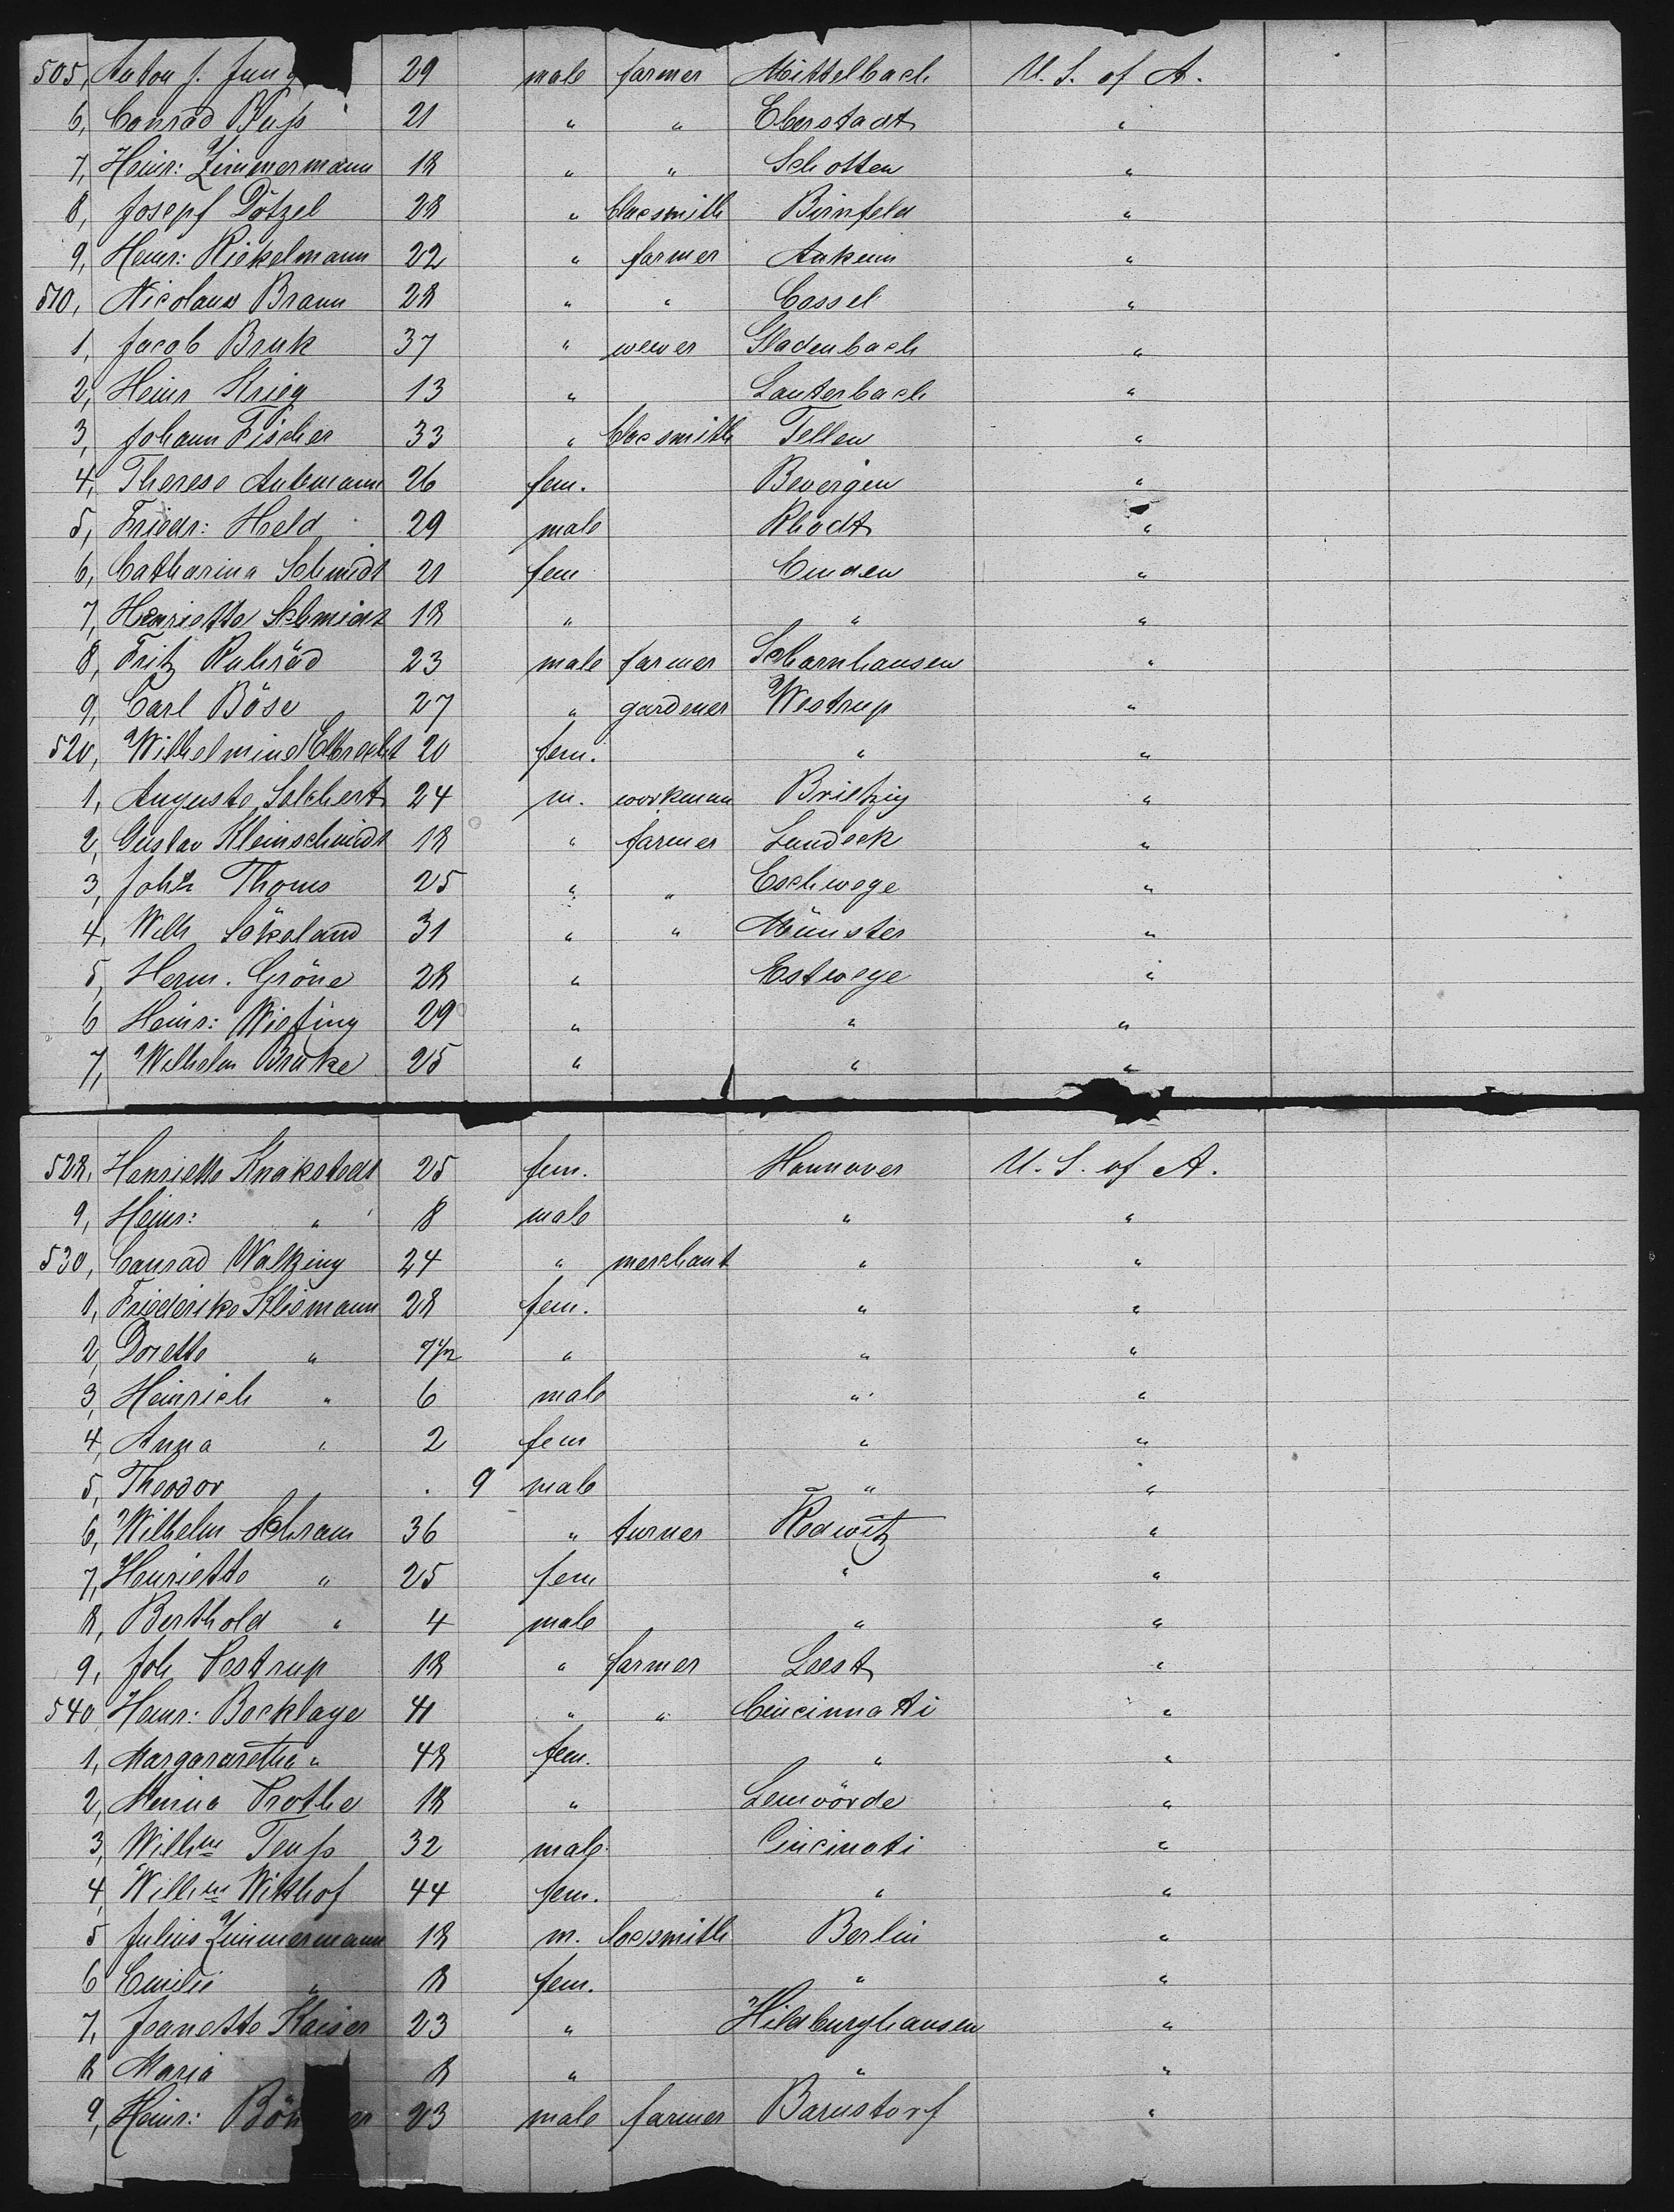 505, Anton J. Jung 29 male farmer Mittelbach U. S. of A.
6, Conrad Buss 21 " " Eberstadt "
7, Heinr: Zimmermann 18 " " Schotten "
8, Josepf Dötzel 28 " blacsmith Birnfeld "
9, Heinr: Riekelmann 22 " farmer Ankum "
510, Nicolaus Braun 28 " " Cassel "
1, Jacob Bruk 37 " wewer Gladenbach "
2, Heinr Krieg 13 " Lauterbach "
3, Johann Fischer 33 " blacsmith Tellen "
4, Therese Ankemann 26 fem. Bevergen "
5, Friedr: Held 29 male Rhodt "
6, Catharina Schmidt 21 fem Emden "
7, Henriette Schmidt 18 " " "
8, Fritz Ruhräd 23 male farmer Scharnhausen "
9, Carl Böse 27 " gardener Westrup "
520, Wilhelmine Elbrecht 20 fem. " "
1, Auguste Selchert 24 m. workman Brietzig "
2, Gustav Kleinschmidt 18 " farmer Landeck "
3, Johh Thoms 25 " " Eschwege "
4, Wilh Sökeland 31 " " Münster "
5, Herm. Gröne 28 " Estwege "
6 Heinr: Wiefing 29 " " "
7, Wilhelm Brake 25 " " "
528, Henriette Knakstedt 25 fem. Hannover U. S. of A.
9, Heinr: " 8 male " "
530, Conrad Walking 24 " merchant " "
1, Friederike Kliemann 28 fem. " "
2, Dorette " 7 1/2 " " "
3, Heinrich " 6 male " "
4, Anna " 2 fem " "
5, Theodor . 9 male " "
6, Wilhelm Schram 36 " turner Redwitz "
7, Henriette " 25 fem " "
8, Berthold " 4 male " "
9, Joh Pestrup 18 " farmer Leest "
540 Heinr: Bocklage 41 " " Cincinnati "
1, Margararetha " 48 fem. " "
2, Minna Prothe 18 " Lemvörde "
3, Wilhm Teuss 32 male Cincinati "
4, Wilhm Witthof 44 fem. " "
5 Julius Zimmermann 18 m. locsmith Berlin "
6 Emilie " 8 fem. " "
7, Jeanette Kaiser 23 " Hildburghausen "
8 Maria 8 " " "
9, Heinr: Bön er 23 male farmer Barnstorf "